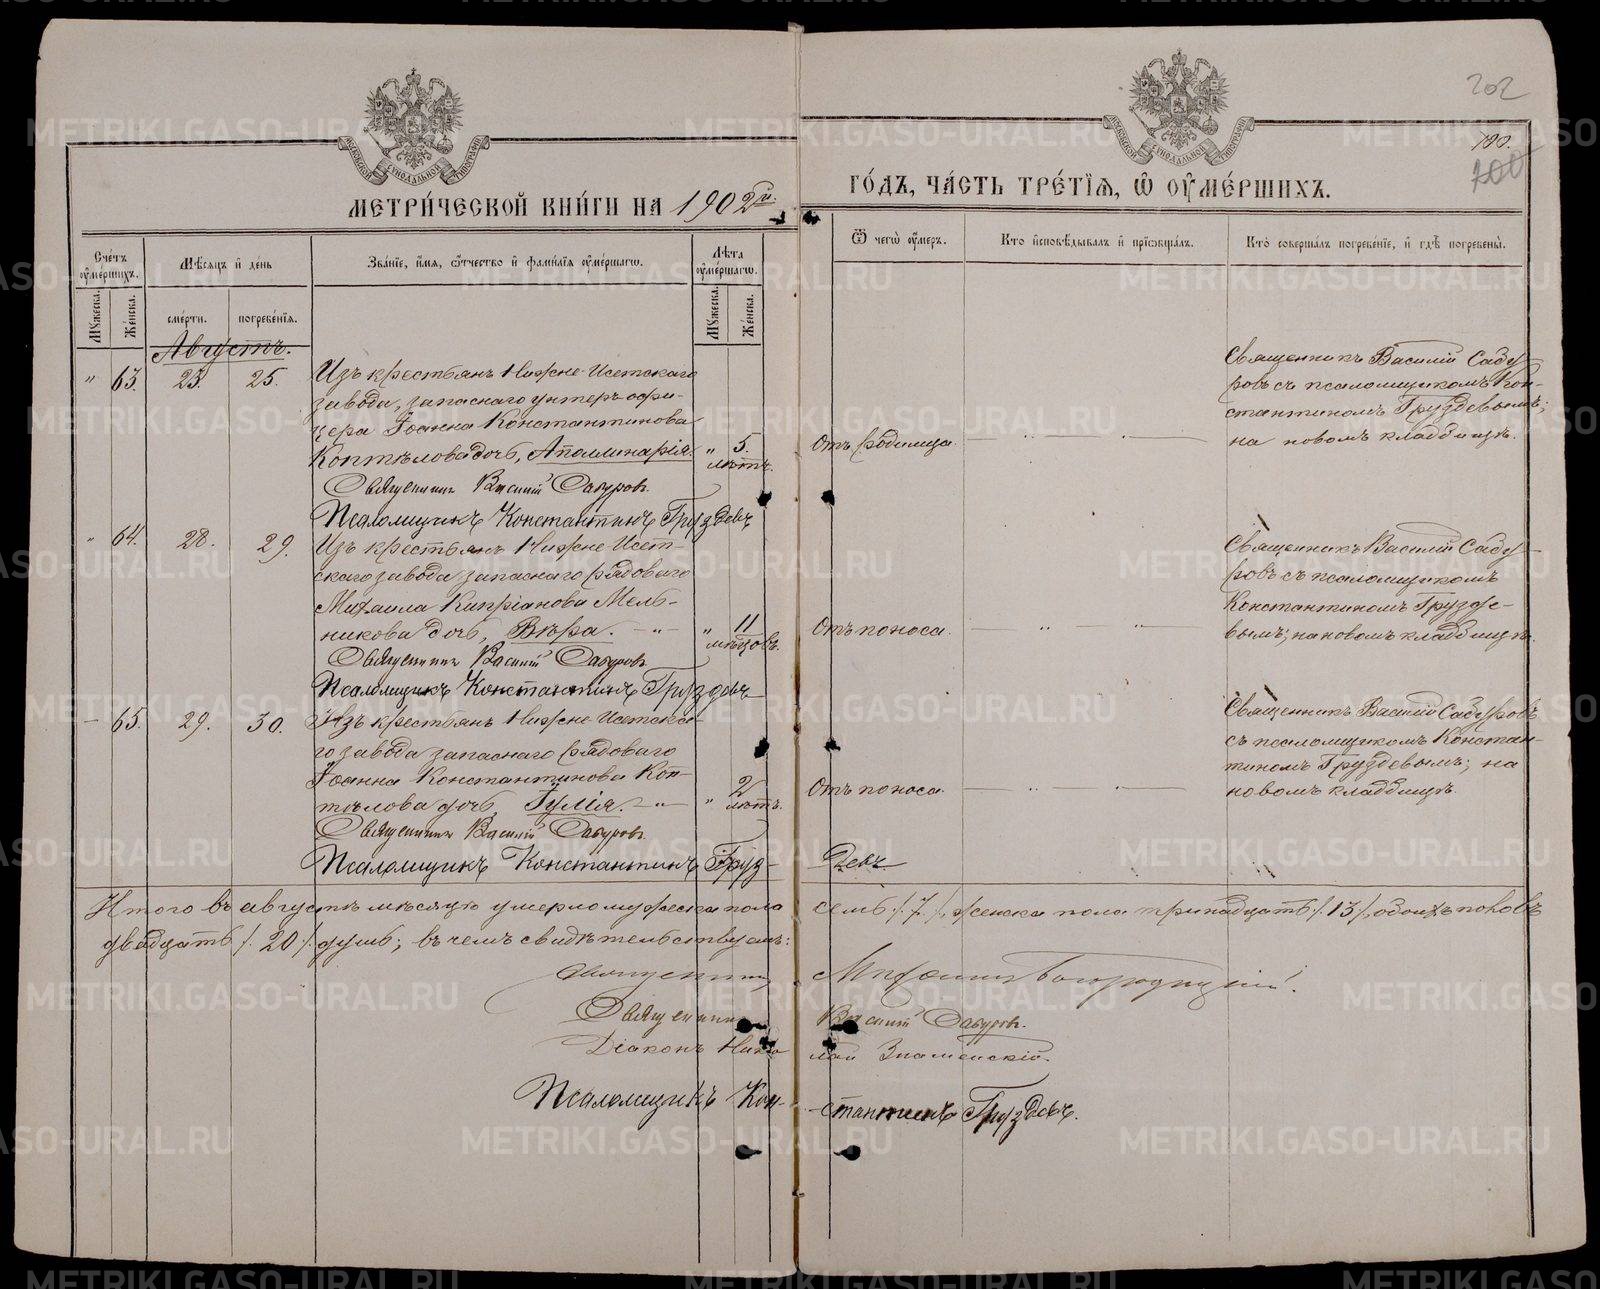 202
190.
100
МЕТРИ́ЧЕСКОЙ КНИ́ГИ НА 1902й.
ГО́ДЪ, ЧА́СТЬ ТРЕ́ТІѦ, Ѡ ОУ҆МЕ́РШИХЪ.
Сче́тъ оу҆ме́ршихъ.
Мꙋжеска.
Же́нска.
Мѣсѧцъ и де́нь
сме́рти.
погребе́нїѧ.
Зва́нїе, и́мѧ, ѻ҆́тчество и фами́лїѧ оу҆ме́ршагѡ.
Лѣ́та оу҆ме́ршагѡ.
Мꙋжеска.
Же́нска.
Ѿ чегѡ̀ оу҆́меръ.
Кто̀ и҆сповѣ́дывалъ и҆ прїѡбща́лъ.
Кто̀ соверша́лъ погребе́нїе, и҆ гдѣ̀ погребены̀.
Августъ.
" 63. 23. 25. Изъ крестьянъ Нижне-Исетскаго
завода, запаснаго унтеръ-офи-
цера Іоанна Константинова
Коптѣлова дочь, Аполлинарія. " 5. лѣтъ.
Отъ родимца.
Священникъ Василій Сабу-
ровъ съ псаломщикомъ Кон-
стантиномъ Груздевымъ;
на новомъ кладбищѣ.
Священникъ Василій Сабуровъ.
Псаломщикъ Константинъ Груздевъ
" 64. 28. 29. Изъ крестьянъ Нижне-Исет-
скаго завода запаснаго рядоваго
Михаила Кипріанова Мель-
никова дочь, Вѣра. " 11 мѣсяцовъ.
Отъ поноса.
Священникъ Василій Сабу-
ровъ съ псаломщикомъ
Константиномъ Грузде-
вымъ; на новомъ кладбищѣ.
Священникъ Василій Сабуровъ
Псаломщикъ Константинъ Груздевъ
— 65. 29. 30. Изъ крестьянъ Нижне-Исетска-
го завода запаснаго рядоваго
Іоанна Константинова Коп-
тѣлова дочь, Іулія. " 2 лѣтъ.
Отъ поноса.
Священникъ Василій Сабуровъ
съ псаломщикомъ Констан-
тиномъ Груздевымъ; на
новомъ кладбищѣ.
Священникъ Василій Сабуровъ
Псаломщикъ Константинъ Груз-
девъ
Итого въ августѣ мѣсяцѣ умерло мужеска пола семь /7/, женска пола тринадцать /13/, обоихъ половъ
двадцать /20/ душъ; въ чемъ свидѣтельствуемъ:
Священникъ Михаилъ Богородицкій.
Священникъ Василій Сабуровъ.
Діаконъ Николай Знаменскій.
Псаломщикъ Константинъ Груздевъ.
METRIKI.GASO-URAL.RU